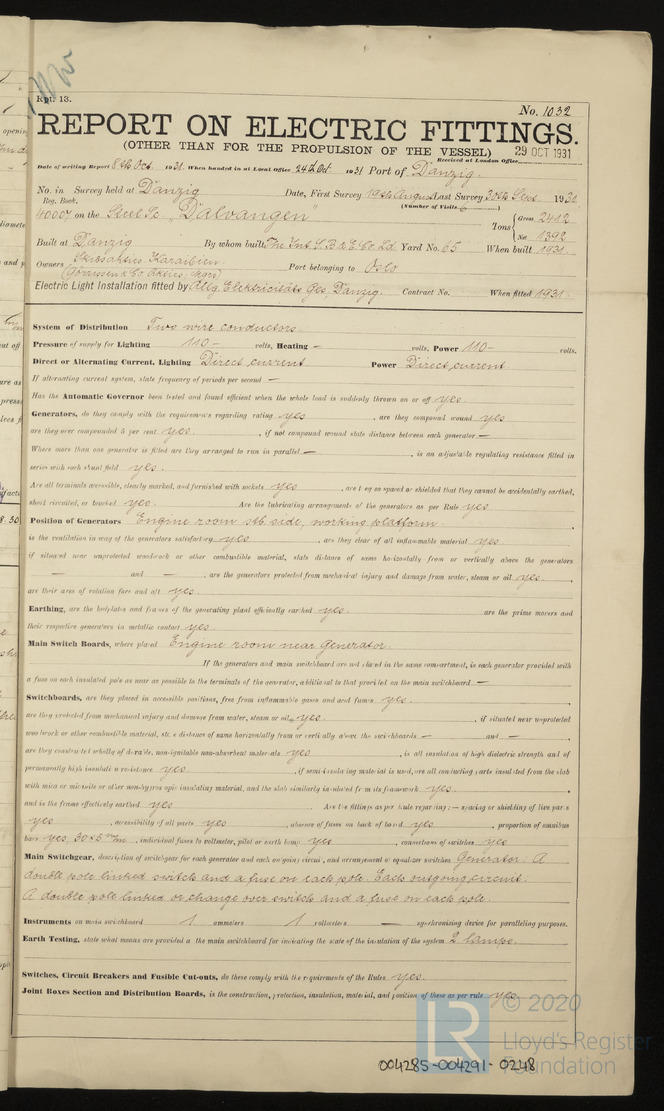 Rpt. 13.
No. 1032
REPORT ON ELECTRIC FITTINGS.
(OTHER THAN FOR THE PROPULSION OF THE VESSEL)
Received at London Office 29 OCT 1931
Date of writing Report 8th Oct. 1931. When handed in at Local Office 24th Oct 1931 Port of Danzig.
No. in Survey held at Danzig Date, First Survey 19th August Last Survey 30th Sept 1930
Reg. Book. (Number of Visits 6)
40007 on the Steel Sc "Dalvangen" Tons {Gross 2412
Net 1392
Built at Danzig By whom built The Int. S.B & E. Co. Ld. Yard No. 65 When built 1931.
Owners Skibsakties Karaibien Port belonging to Oslo
(Gorrissen & Co Akties, Mgrs)
Electric Light Installation fitted by Allg. Elektricitäts Ges, Danzig. Contract No. When fitted 1931.
System of Distribution Two wire conductors.
Pressure of supply for Lighting 110- volts, Heating - volts, Power 110- volts.
Direct or Alternating Current, Lighting Direct current Power Direct current.
If alternating current system, state frequency of periods per second —
Has the Automatic Governor been tested and found efficient when the whole load is suddenly thrown on or off yes.
Generators, do they comply with the requirements regarding rating yes, are they compound wound yes
are they over compounded 5 per cent yes, if not compound wound state distance between each generator —
Where more than one generator is fitted are they arranged to run in parallel —, is an adjustable regulating resistance fitted in
series with each shunt field yes.
Are all terminals accessible, clearly marked, and furnished with sockets yes, are they so spaced or shielded that they cannot be accidentally earthed,
short circuited, or touched yes. Are the lubricating arrangements of the generators as per Rule yes
Position of Generators Engine room stb. side, working platform.
is the ventilation in way of the generators satisfactory yes, are they clear of all inflammable material yes
if situated near unprotected woodwork or other combustible material, state distance of same horizontally from or vertically above the generators
— and —, are the generators protected from mechanical injury and damage from water, steam or oil yes.
are their axes of rotation fore and aft yes.
Earthing, are the bedplates and frames of the generating plant efficiently earthed yes. are the prime movers and
their respective generators in metallic contact yes.
Main Switch Boards, where placed Engine room near Generator.
If the generators and main switchboard are not placed in the same compartment, is each generator provided with
a fuse on each insulated pole as near as possible to the terminals of the generator, additional to that provided on the main switchboard —
Switchboards, are they placed in accessible positions, free from inflammable gases and acid fumes yes.
are they protected from mechanical injury and damage from water, steam or oil yes., if situated near unprotected
woodwork or other combustible material, state distance of same horizontally from or vertically above the switchboards — and —
are they constructed wholly of durable, non-ignitable non-absorbent materials yes, is all insulation of high dielectric strength and of
permanently high insulation resistance yes, if semi-insulating material is used, are all conducting parts insulated from the slab
with mica or micanite or other non-hygroscopic insulating material, and the slab similarly insulated from its framework yes.
and is the frame effectively earthed yes Are the fittings as per Rule regarding:— spacing or shielding of live parts
yes, accessibility of all parts yes, absence of fuses on back of board yes, proportion of omnibus
bars yes, 30×5 m/m, individual fuses to voltmeter, pilot or earth lamp yes, connections of switches yes
Main Switchgear, description of switchgear for each generator and each outgoing circuit, and arrangement of equalizer switches Generator: A
double pole linked switch and a fuse on each pole. Each outgoing circuit:
A double pole linked or change over switch and a fuse on each pole.
Instruments on main switchboard 1 ammeters 1 voltmeters — synchronising device for paralleling purposes.
Earth Testing, state what means are provided at the main switchboard for indicating the state of the insulation of the system 2 lamps.
Switches, Circuit Breakers and Fusible Cut-outs, do these comply with the requirements of the Rules yes.
Joint Boxes Section and Distribution Boards, is the construction, protection, insulation, material, and position of these as per rule yes
© 2020
LR
Lloyd's Register
Foundation
004285-004291-0248